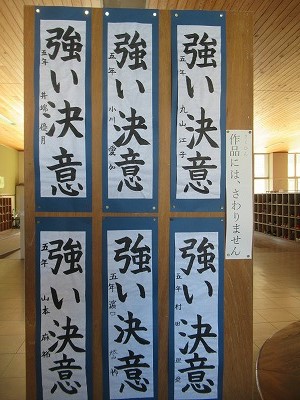 強い決意
五年 丸山江子
強い決意
五年 小川愛加
強い決意
五年 井端優月
作品には、さわりません
強い決意
五年 村田
強い決意
五年
強い決意
五年 山本麻椰